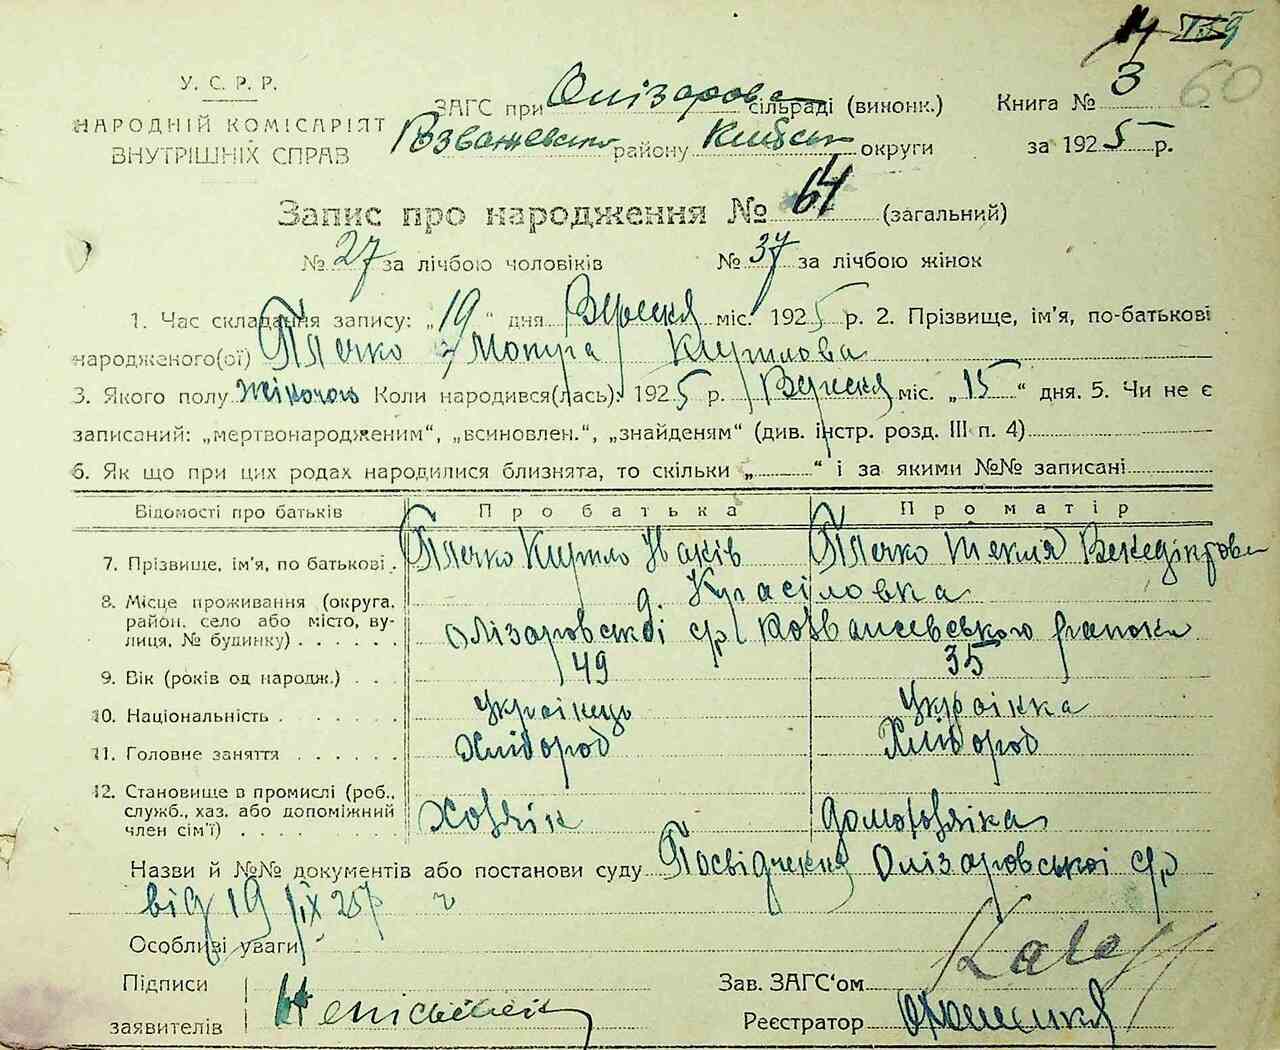 14 139
60
У. С. Р. Р.
НАРОДНІЙ КОМІСАРІЯТ
ВНУТРІШНІХ СПРАВ
ЗАГС при Олізаров сільраді (виконк.) Книга № 3
району Київськ округи за 1925 р.
Запис про народження № 64 (загальний)
№ 27 за лічбою чоловіків № 37 за лічбою жінок
1. Час складання запису: „19" дня Вересня міс. 1925 р. 2. Прізвище, ім'я, по-батькові
народженого(ої) Плечко Мотря Кирилова
3. Якого полу жіночого Коли народився(лась): 1925 р. Вересня міс. „15" дня. 5. Чи не є
записаний: „мертвонародженим", „всиновлен.", „знайденям" (див. інстр. розд. III п. 4)
6. Як що при цих родах народилися близнята, то скільки „ " і за якими №№ записані
Відомості про батьків Про батька Про матір
7. Прізвище, ім'я, по батькові. Плечко Кирило Іваків Плечко Текля Венедіктова
8. Місце проживання (округа, район, село або місто, вулиця, № будинку) д. Красіловка
Олізаровської с/р Розважевського району
9. Вік (років од народж.) 49 35
10. Національність Українець Українка
11. Головне заняття Хлібороб Хлібороб
12. Становище в промислі (роб., служб., хаз. або допоміжний член сім'ї) Хозяїн домохозяїка
Назви й №№ документів або постанови суду Посвідчення Олізаровської с/р
від 19/IX 25 р
Особливі уваги
Підписи
заявителів
Зав. ЗАГС'ом
Реєстратор